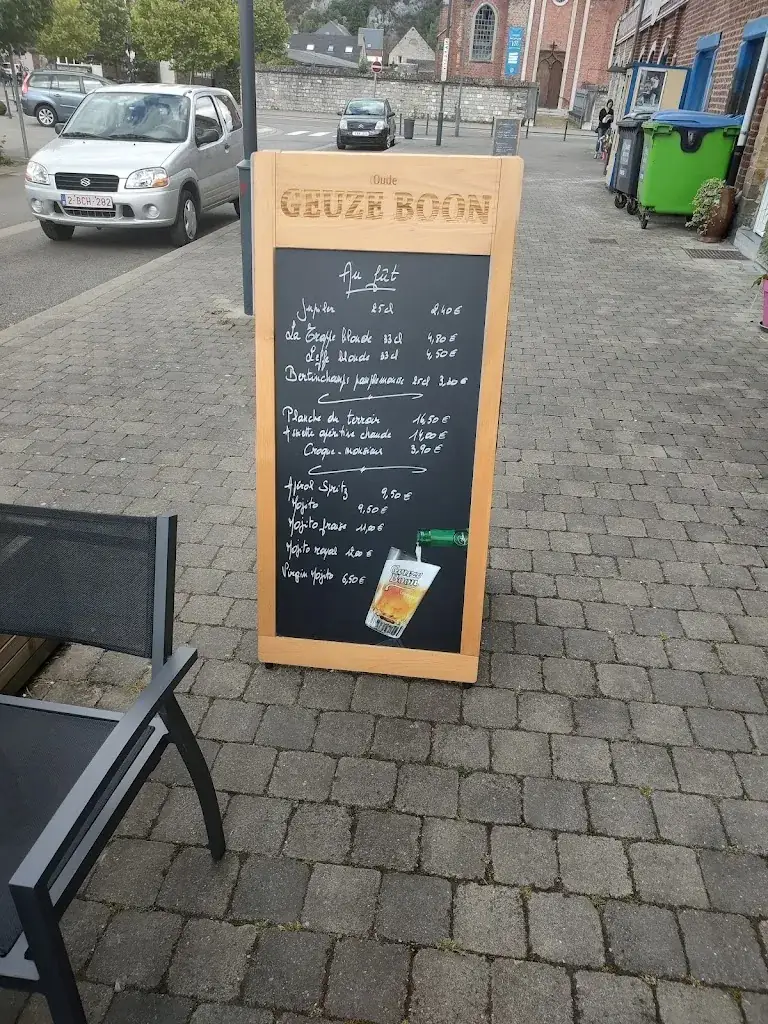 Oude
GEUZE BOON
Au fût
Jupiler 25cl 2,40€
La Trappe blonde 33cl 4,80€
Leffe blonde 33cl 4,50€
Bertinchamps pamplemousse 25cl
Planche du terroir 16,50€
Assiette apéritive chaude 14,00€
Croque-monsieur 3,90€
Aperol Spritz 9,50€
Mojito 9,50€
Mojito fraise 11,00€
Mojito royal 12,00€
Virgin Mojito 6,50€